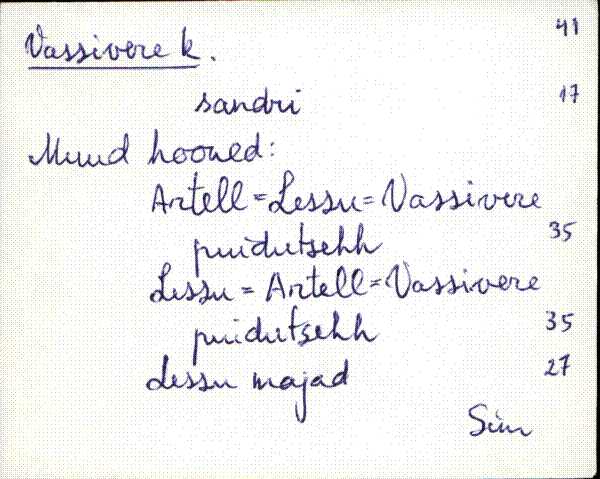 41
Vassivere k.
sandri 17
Muud hooned:
Artell=Lessu=Vassivere
puidutsehh 35
Lessu=Artell=Vassivere
puidutsehh 35
Lessu majad 27
Sim